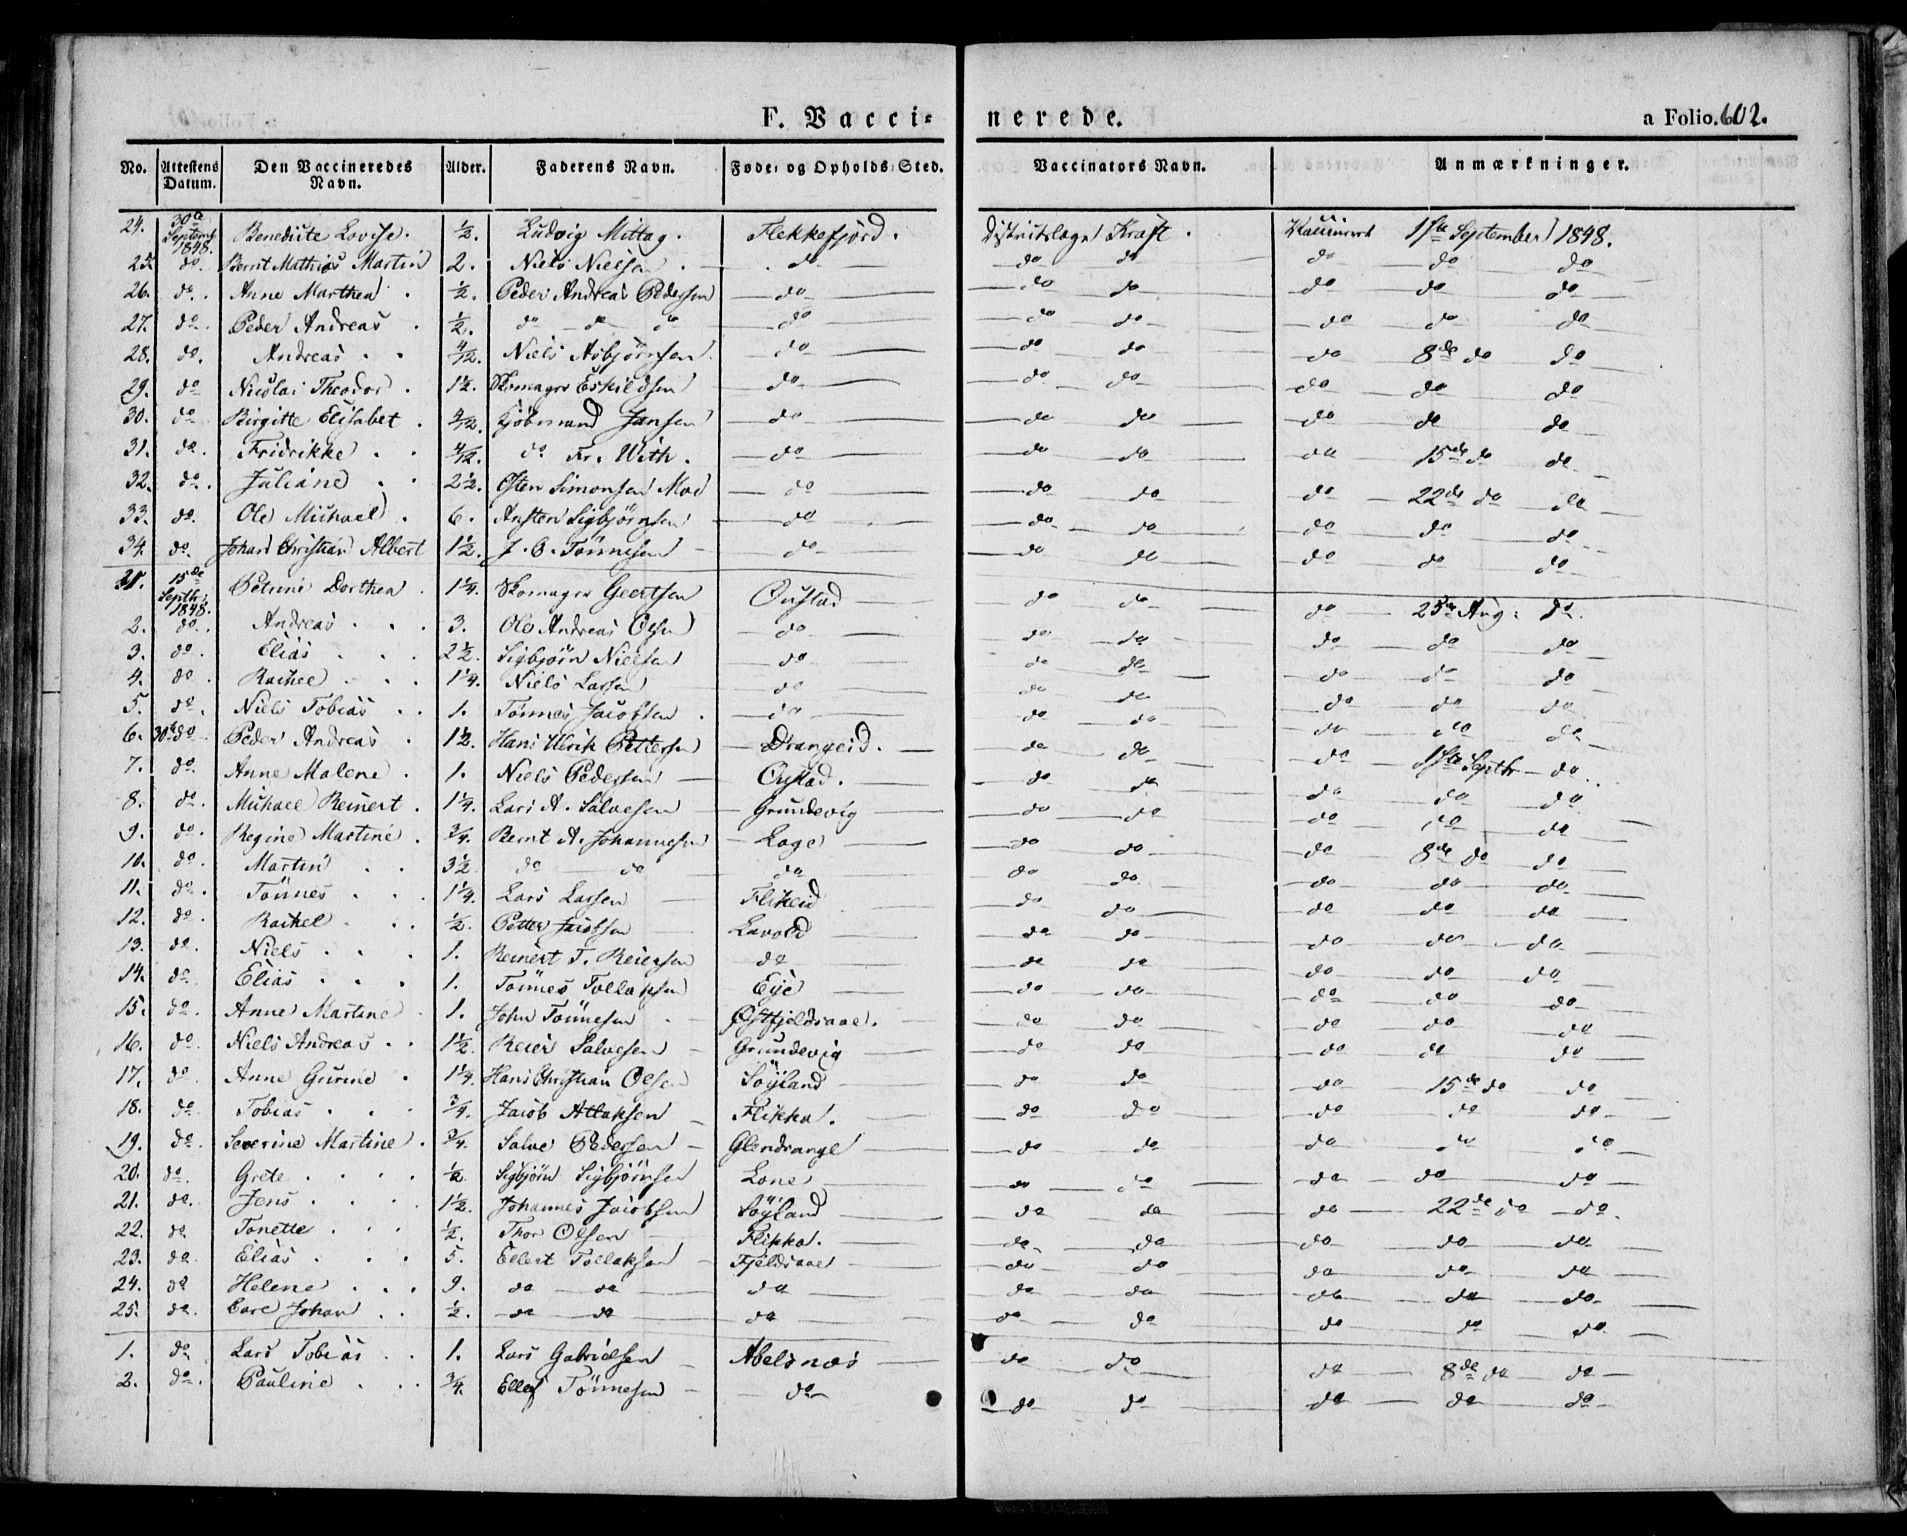 F. Vacci- nerede. a Folio. 602.
No. Attestens Datum. Den Vaccineredes Navn. Alder. Faderens Navn. Føde- og Opholds-Sted. Vaccinators Navn. Anmærkninger.
24. 30te Septemb 1848. Benedicte Lovise. ½. Ludvig Mittag. Flekkefjord. Distriktslæge Kraft. Vaccineret 1ste September 1848.
25. do. Bernt Mathias Martin 2. Niels Nielsen do do do do do do
26. do. Anne Marthea ½. Peder Andreas Pedersen do do do do do do
27. do. Peder Andreas ½. do do do do do do do do do
28. do. Andreas 4/12. Niels Asbjörnsen do do do do 8de do do
29. do Nicolai Theodor 1½. Skomager Eskildsen do do do do do do
30. do Birgitte Elisabet 4/12. Kjöbmand Jansen do do do do do do
31. do. Fridrikke 4/12. do Fr. With. do do do do 15de do do
32. do. Juliane 2½. Osten Simonsen Moe do do do do 22de do do
33. do. Ole Michael 6. Ansten Sigbjörnsen do do do do do do
34. do. Johan Christian Albert 1½. J. C. Tönnesen do do do do do do
15de Septbr. 1848. Petrine Dorthea 1¼. Skomager Geertsen do do do 25de Aug. do.
2. do. Andreas 3. Ole Andreas Olsen do do do do do do
3. do. Elias 2½. Sigbjörn Nielsen do do do do do do
4. do. Rachel 1¼. Niels Larsen do do do do do do
5. do. Niels Tobias 1. Tönnes Jacobsen do do do do do do
6. 30te do Peder Andreas 1½. Hans Ulrik Pettersen Drangeid. do do do do do
7. do. Anne Malene 1. Niels Pedersen do do do 1ste Septbr do
8. do. Michael Reinert 1¼. Lars A. Salvesen Grundevig do do do do do
9. do. Regine Martine ¾. Bernt A. Johannesen Loge do do do do do
10. do. Martin 3½. do do do do do do 8de do do
11. do. Tönnes 1¼. Lars Larsen Flikeid do do do do do
12. do. Rachel ½. Petter Jacobsen Lavold do do do do do
13. do. Niels 1. Reinert T. Reiersen do do do do do do
14. do. Elias 1. Tönnes Tollaksen Eije do do do do do
15. do. Anne Martine 1. John Tönnesen Østfjeldsaae. do do do do do
16. do. Niels Andreas 1½. Reier Salvesen Grundevig do do do do do
17. do Anne Gurine 1¼. Hans Christian Olsen Söyland do do do 15de do do
18. do. Tobias ¾. Jacob Atlaksen Flikka. do do do do do
19. do. Severine Martine ¾. Salve Pedersen Glendrange do do do do do
20. do. Grete ½. Sigbjörn Sigbjörnsen Lone do do do do do
21. do. Jens 1½. Johannes Jacobsen Söyland do do do 22de do do.
22. do Tonette ½. Thor Olsen Flikka. do do do do do
23. do. Elias 5. Ellert Tollaksen Fjeldsaae do do do do do
24. do Helene 9. do do do do do do do do
25. do. Carl Johan ½. do do do do do do do do
1. do Lars Tobias 1. Lars Gabrielsen Abelsnæs do do do 8de do do
2. do. Pauline ¾. Ellef Tönnesen do do do do do do